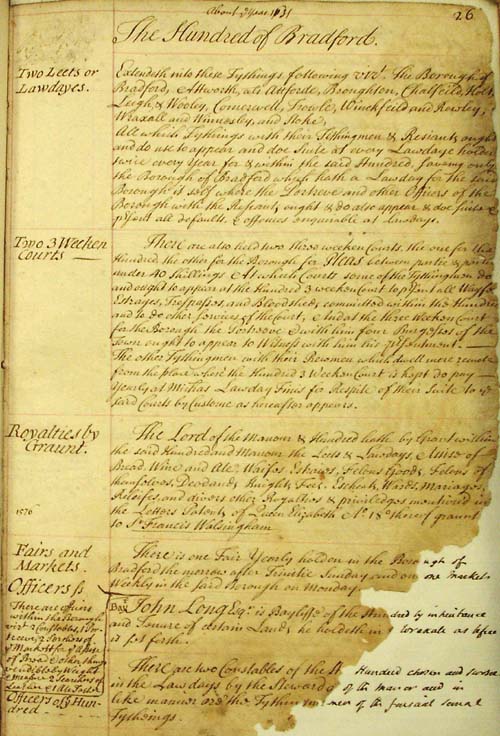 About ye Year 1631
26
The Hundred of Bradford.
Two Leets or
Lawdayes.
Extendeth into these Tythings following vizt. The Borough of
Bradford, Attworth, als Attforde, Broughton, Chalfeild, Holt,
Leigh & Wooley, Comerwell, Trowle, Winckfeild and Rowley,
Wraxall and Winnesley, and Stoke,
All which Tythings with their Tithingmen & Resiants ought
and do use to appear and doe Suite at every Lawdaye holden
twice every Year for & within the said Hundred, saveing only
the Borough of Bradford which hath a Lawday for the same
Borough it self where the Portreve and other Officers of the
Borough with the Resiant, ought & do also appear & doe suite &
pʳsent all defaults & offences enquirable at Lawdays.
Two 3 Weeken
Courts
There are also held two three weeken Courts. the one for the
Hundred the other for the Borough for Pleas between partie & partie
under 40 Shillings At which Courts some of the Tythingmen do
and ought to appear at the Hundred 3 weeken Court to pʳsent all Wayfes
Estrayes, Trespasses, and Bloodsheds committed within the Hundred
and to do other services of the Court, & And at the three Weeken Court
for the Borough the Portreeve & with him four Burgesses of the
Town ought to appear to Witness with him his pʳsentment.
The other Tythingmen with their Powmen which dwell more remote
from the place where the Hundred 3 Weeken Court is kept do pay
Yearly at Michas Lawday Fines for Respite of their Suite to ye
said Courts by Custome as hereafter appears.
Royalties by
Graunt.
The Lord of the Manour & Hundred hath by Grant within
the said Hundred and Manour the Leets & Lawdays, Assise of
Bread Wine and Ale Waifes Estraies, Felons Goods Felons of
themselves, Deodands, Knights Fees, Escheats, Wards, Mariages,
Releifes, and divers other Royalties & priviledges mentioned in
the Letters Patents of Queen Elizabeth Aº 18º thereof graunt
1576
to Sr. Francis Walsingham
Fairs and
Markets.
There is one Fair Yearly holden in the Borough of
Bradford the morrow after Trinitie Sunday and on one market
Weekly in the said Borough on Monday
Officers
There are officers
within the Borough
vizt 2 Constables, 1 Port-
reeve, 2
of Bread & other things
vendible by Weight
& measure 2 Searchers of
Leather & 1 Ale Taster
Bay John Long Esqr. is Bayliffe of the Hundred by inheritance
and Tenure of certain Lands he holdeth in Corsale as before
is set forth.
Officers of ye Hun-
dred
There are two Constables of the Hundred chosen and sworne
in the Lawdays by the Steward of the manor and in
like manner are the Tythingmen of the foresaid several
Tythings.